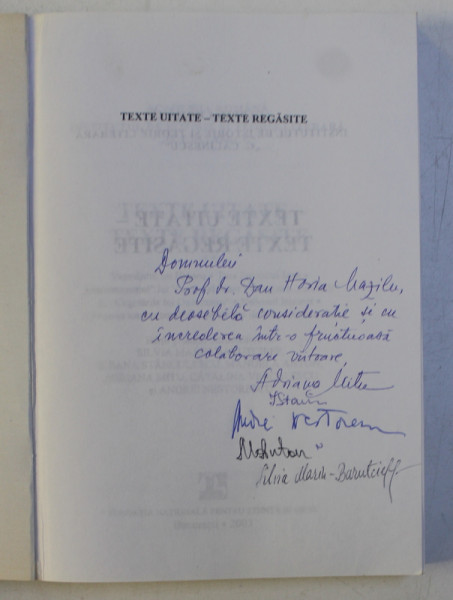 TEXTE UITATE – TEXTE REGĂSITE
Domnului
Prof. dr. Dan Horia Mazilu,
cu deosebită considerație și cu
încrederea într-o fructuoasă
colaborare viitoare,
Adriana Mitu
Silvia Marin-Barutcieff